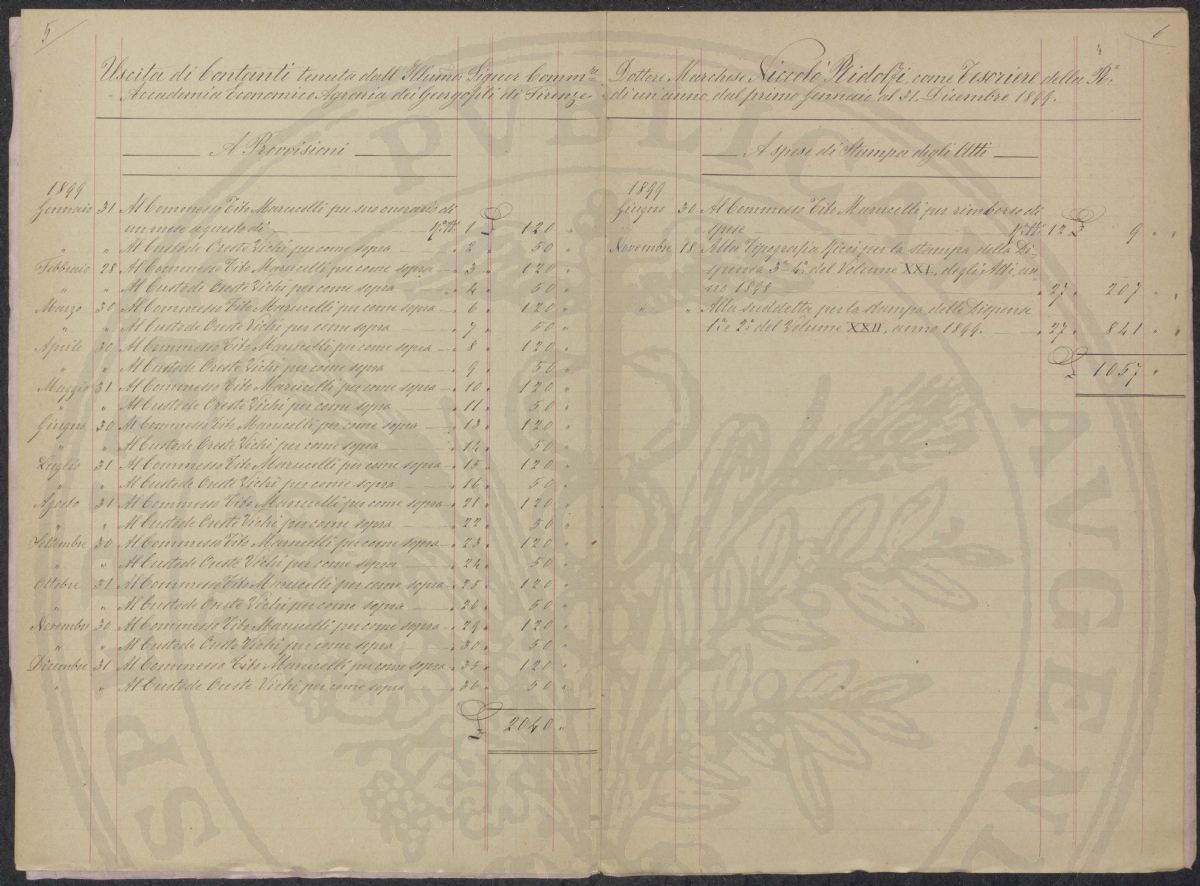 5
Uscita di Contanti tenuta dall'Illumo Signor Commre
Accademia Economico Agraria dei Georgofili di Firenze
A Provvisioni
1899
Gennaio 31 Al Commesso Tito Marucelli per suo onorario di
un mese a questo dì N.º 1 £ 120 "
" " Al Custode Oreste Vichi per come sopra " 2 " 50 "
Febbraio 28 Al Commesso Tito Marucelli per come sopra " 3 " 120 "
" " Al Custode Oreste Vichi per come sopra " 4 " 50 "
Marzo 30 Al Commesso Tito Marucelli per come sopra " 6 " 120 "
" " Al Custode Oreste Vichi per come sopra " 7 50 "
Aprile 30 Al Commesso Tito Marucelli per come sopra " 8 120 "
" " Al Custode Oreste Vichi per come sopra " 9 " 50 "
Maggio 31 Al Commesso Tito Marucelli per come sopra " 10 " 120 "
" " Al Custode Oreste Vichi per come sopra " 11 " 50 "
Giugno 30 Al Commesso Tito Marucelli per come sopra " 13 " 120 "
" " Al Custode Oreste Vichi per come sopra " 14 " 50 "
Luglio 31 Al Commesso Tito Marucelli per come sopra " 15 " 120 "
" " Al Custode Oreste Vichi per come sopra " 16 " 50 "
Agosto 31 Al Commesso Tito Marucelli per come sopra " 21 " 120 "
" " Al Custode Oreste Vichi per come sopra " 22 " 50 "
Settembre 30 Al Commesso Tito Marucelli per come sopra " 23 " 120 "
" " Al Custode Oreste Vichi per come sopra " 24 " 50 "
Ottobre 31 Al Commesso Tito Marucelli per come sopra " 25 " 120 "
" " Al Custode Oreste Vichi per come sopra " 26 " 50 "
Novembre 30 Al Commesso Tito Marucelli per come sopra " 29 " 120 "
" " Al Custode Oreste Vichi per come sopra " 30 " 50 "
Dicembre 31 Al Commesso Tito Marucelli per come sopra " 35 " 120 "
" " Al Custode Oreste Vichi per come sopra " 36 " 50 "
£ 2040 "
6
Dottore Marchese Niccolò Ridolfi, come Tesoriere della Ra
di un'anno dal primo Gennaio al 31 Dicembre 1899.
A spese di Stampa degli Atti
1899
Giugno 30 Al Commesso Tito Marucelli per rimborso di
spese 12 £ 9 " "
Novembre 18 Alla Tipografia per la stampa della Di-
spensa 3a 4a del Volume XXI, degli Atti, an-
no 1898 " 27 " 207 " "
" " Alla suddetta per la stampa delle Dispense
1a e 2a del Volume XXII, anno 1899. " 27 " 841 " "
£ 1057 "
PUBLICAE
AUGEND